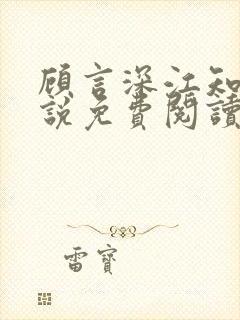 顾言深江知
說免費閱讀
雷寶